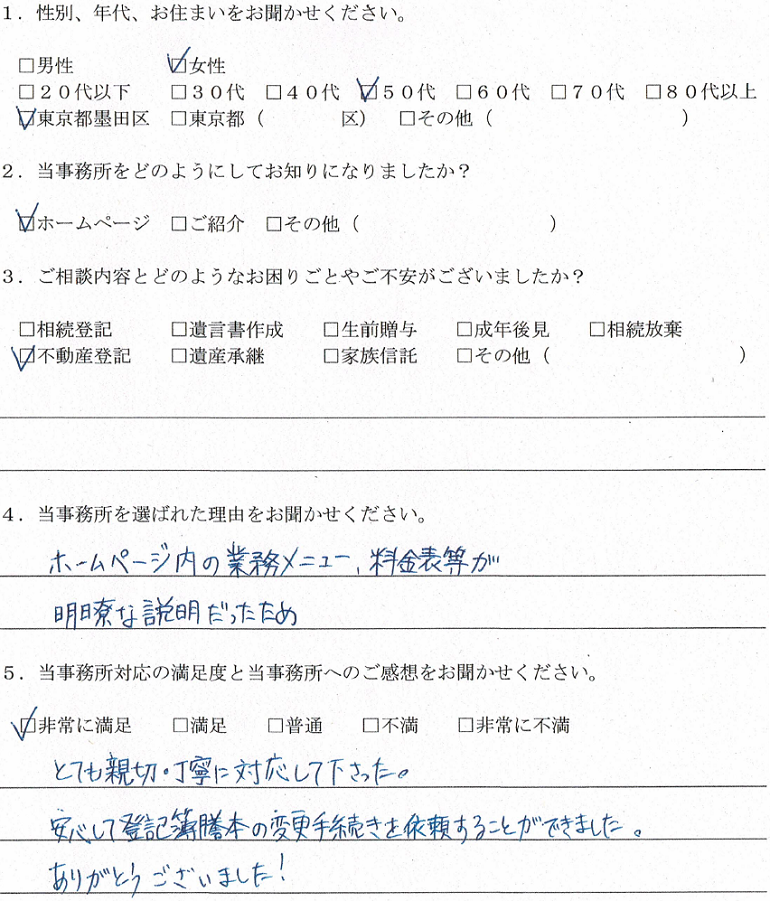 1．性別、年代、お住まいをお聞かせください。
□男性 ☑女性
□20代以下 □30代 □40代 ☑50代 □60代 □70代 □80代以上
☑東京都墨田区 □東京都（ 区） □その他（ ）
2．当事務所をどのようにしてお知りになりましたか？
☑ホームページ □ご紹介 □その他（ ）
3．ご相談内容とどのようなお困りごとやご不安がございましたか？
□相続登記 □遺言書作成 □生前贈与 □成年後見 □相続放棄
☑不動産登記 □遺産承継 □家族信託 □その他（ ）
4．当事務所を選ばれた理由をお聞かせください。
ホームページ内の業務メニュー、料金表等が
明瞭な説明だったため
5．当事務所対応の満足度と当事務所へのご感想をお聞かせください。
☑非常に満足 □満足 □普通 □不満 □非常に不満
とても親切・丁寧に対応して下さった。
安心して登記簿謄本の変更手続きを依頼することができました。
ありがとうございました！